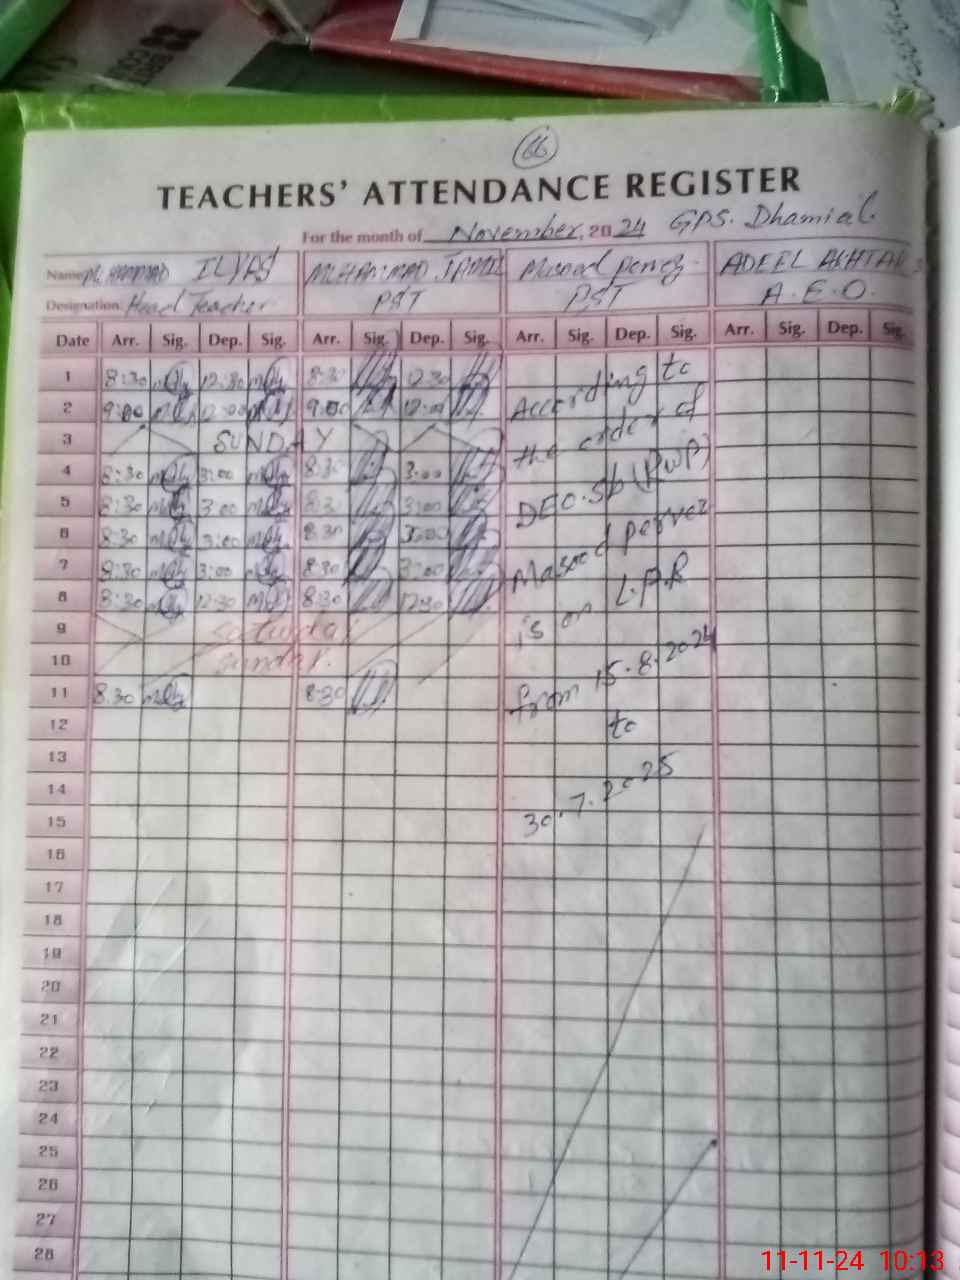 66
TEACHERS' ATTENDANCE REGISTER
For the month of November, 2024 GPS. Dhamial
Name: MUHAMMAD ILYAS MUHAMMAD JAMIL Masood Pervez ADEEL AKHTAR
Designation: Head Teacher PST PST A.E.O.
Date Arr. Sig. Dep. Sig. Arr. Sig. Dep. Sig. Arr. Sig. Dep. Sig. Arr. Sig. Dep. Sig.
1 8:30 12:30 8:30 12:30 According to
2 9:00 12:00 9:00 12:00 the order of
3 SUNDAY
4 8:30 3:00 8:30 3:00 DEO.
5 8:30 3:00 8:30 3:00
6 8:30 3:00 8:30 3:00 Masood Pervez
7 8:30 3:00 8:30 3:00
8 8:30 12:30 8:30 12:30 is on L.P.R
9 Saturday
10 Sunday. from 15.8.2024
11 8:30 8:30
12 to
13
14 30.7.2025
15
16
17
18
19
20
21
22
23
24
25
26
27
28
11-11-24 10:13